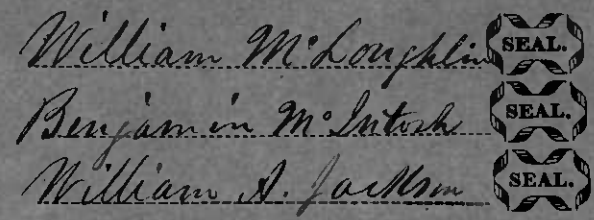 William McLoughlin SEAL.
Benjamin McIntosh SEAL.
William A. Jackson SEAL.